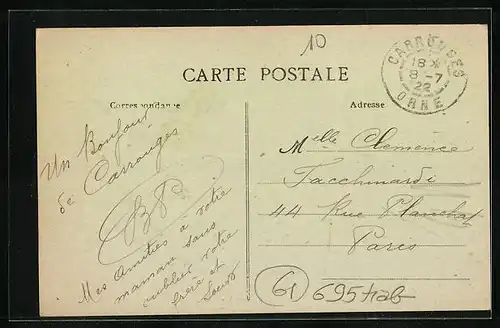 10
CARTE POSTALE
CARROUGES
18 *
8 -7
22
ORNE
Correspondance
Adresse
Un Bonjour
de Carrouges
Mes amitiés à votre
maman sans
oublier votre
frère et
Melle Clemence
Tacchinardi
44 Rue Planchat
Paris
61
695